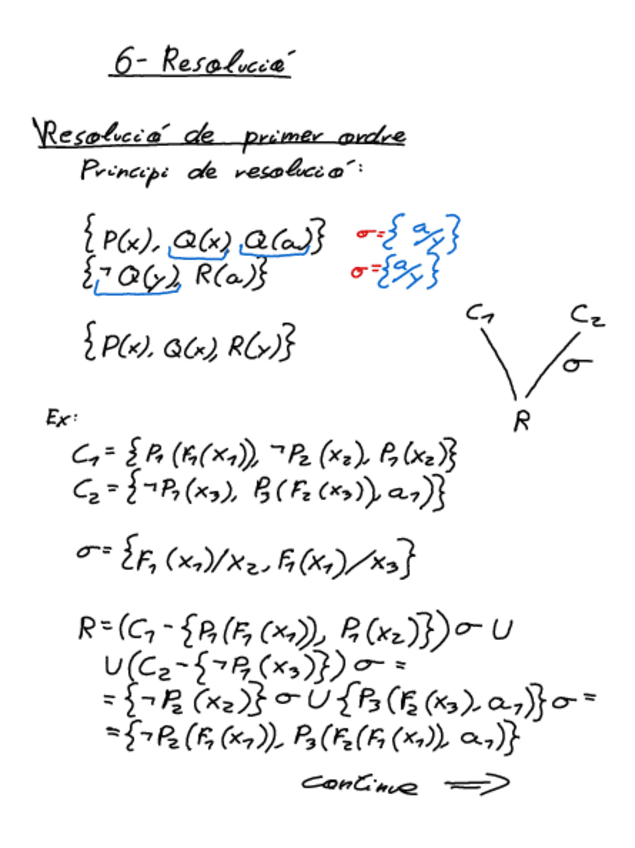 6- Resolució
Resolució de primer ordre
Principi de resolució:
{P(x), Q(x), Q(a)} σ={a/y}
{¬Q(y), R(a)} σ={a/y}
{P(x), Q(x), R(y)}
C₁ C₂
σ
R
Ex:
C₁ = {P₁(F₁(x₁)), ¬P₂(x₂), P₁(x₂)}
C₂ = {¬P₁(x₃), P₃(F₂(x₃)), a₁)}
σ = {F₁(x₁)/x₂, F₁(x₁)/x₃}
R = (C₁ - {P₁(F₁(x₁)), P₁(x₂)})σ ∪
∪(C₂ - {¬P₁(x₃)})σ =
= {¬P₂(x₂)}σ ∪ {P₃(F₂(x₃), a₁)}σ =
= {¬P₂(F₁(x₁)), P₃(F₂(F₁(x₁)), a₁)}
continue ⇒